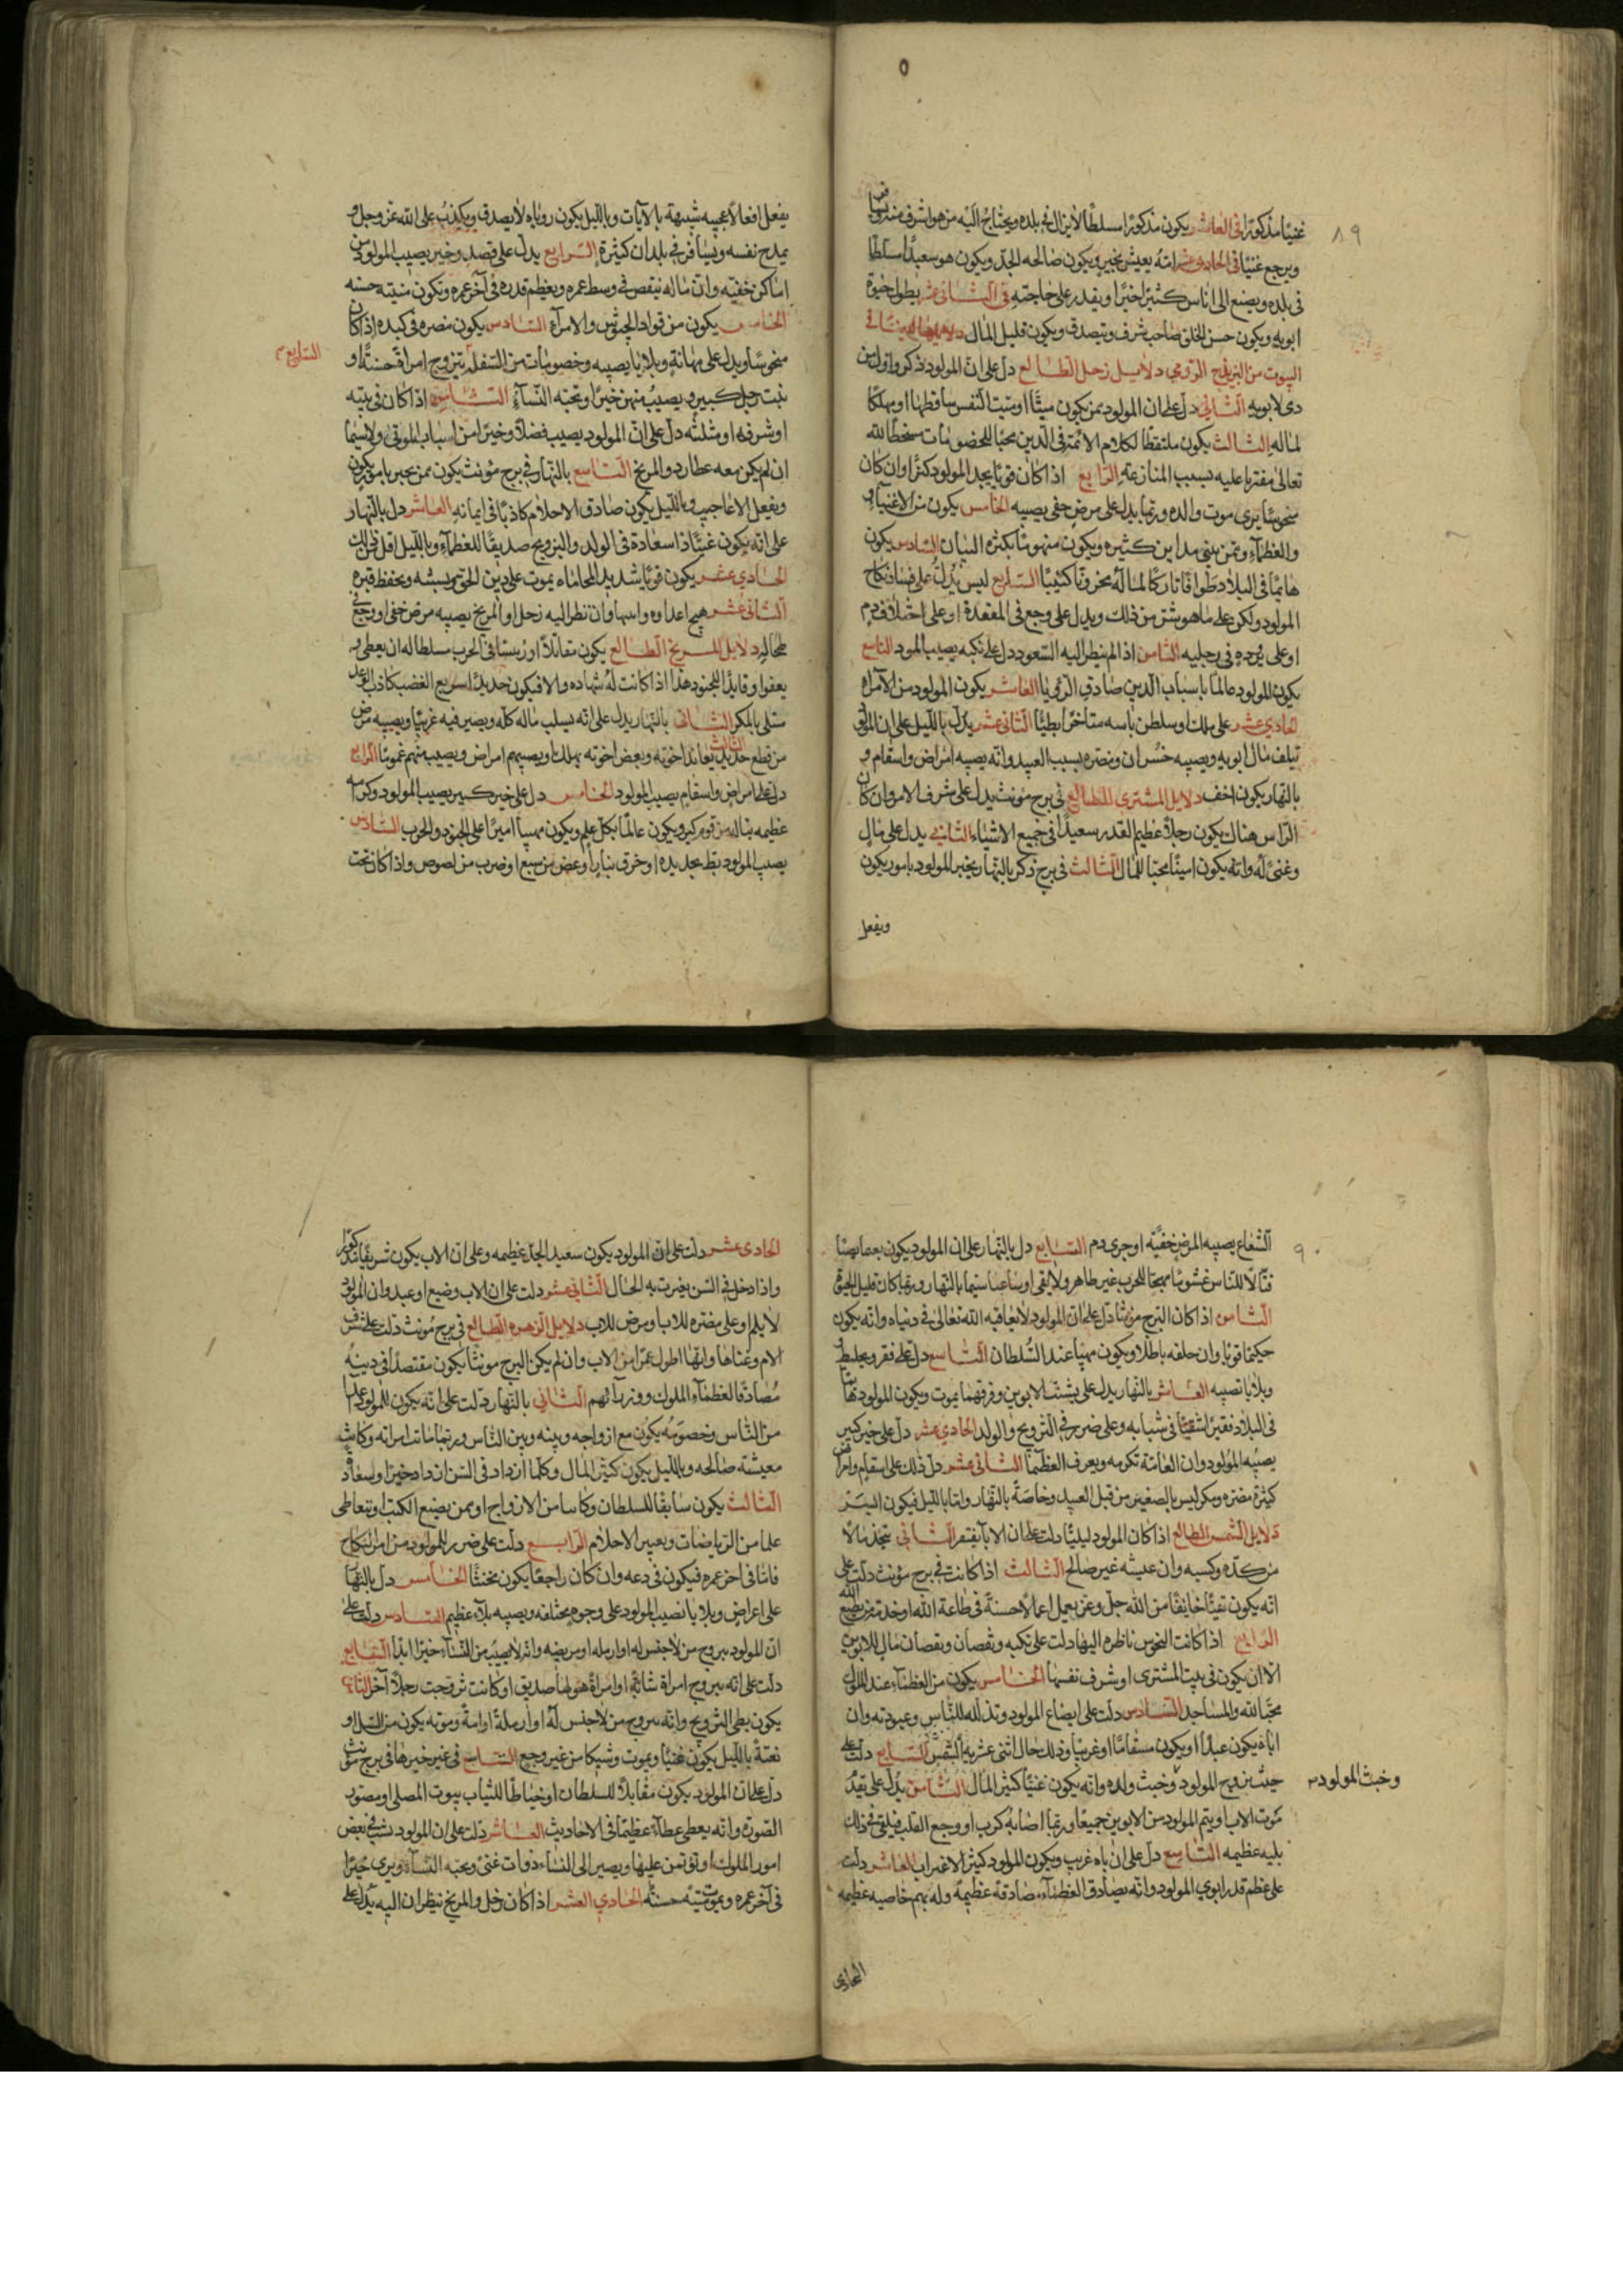 ٨٩
غنيًا مذكورًا في العاشر يكون مذكورًا مسلطًا لا يزال في بلده ويحتاج اليه من هو اشرف منه
ويرجع غنيًا في الحادي عشر انه يعيش بخير ويكون صالحه الجد ويكون هو سعيدًا مسلطًا
في بلده ويصنع الى اناس كثير اخيرًا ويقدر على حاجته في الثاني عشر يطول حيوة
ابويه ويكون حسن الخلق صاحب شرف ويتصدق ويكون قليل المال
البيوت من البزيذج الرومي دلايل زحل الطالع دل على ان المولود ذكر واول من
لابويه الثاني دل على ان المولود ممن يكون ميتًا او ميت النفس ساقطها او مهلكا
لماله الثالث يكون ملتقطًا لكلام الائمة في الدين محبًا للخصومات مسخطًا لله
تعالى مفتريا عليه بسبب المنازعة الرابع اذا كان قويًا يجد المولود كنزًا وان كان
منحوسًا يرى موت والده وربما يدل على مرض خفي يصيبه الخامس يكون من الاغنياء و
والعظماء وممن يبني مداين كثيره ويكون منهومًا بكثرة البنيان السادس يكون
هايمًا في البلاد طوافًا تاركًا لماله محزونًا كئيبًا السابع ليس يدل على فساد نكاح
المولود ولكن على ما هو شر من ذلك ويدل على وجع في المقعدة او على اختلاف دم
او على في رجليه الثامن اذا لم ينظر اليه السعود دل على نكبه يصيب المولود التاسع
يكون المولود عالمًا باسباب الدين صادق الرؤيا العاشر يكون المولود من الامراء
الحادي عشر على ملك او سلطن باسه متاخرًا بطيئًا الثاني عشر يدل بالليل على ان المولود
يتلف مال ابويه ويصيبه خسران ومضره بسبب العبيد وانه يصيبه امراض واسقام و
بالنهار يكون اخف دلايل المشتري الطالع في برج مونث يدل على شرف الام وان كان
الراس هناك يكون رجلا عظيم القدر سعيدًا في جميع الاشياء الثاني يدل على مال
وغنى له وانه يكون امينًا محبًا للمال الثالث في برج ذكر بالنهار يخبر المولود بامور يكون
ويفعل
يفعل افعالا عجيبه شبيهة بالايات وبالليل يكون روياه لا يصدق ويكذب على الله عز وجل و
يمدح نفسه ويسافر في بلدان كثيرة الرابع يدل على قصد وخير يصيب المولود من
اماكن خفيه وان ماله ينقص في وسط عمره ويعظم قدره في آخر عمره وتكون منيته حسنه
الخامس يكون من قواد الجيوش والامراء السادس يكون مضره في كبده اذا كان
منحوسًا ويدل على مهانة وبلايا يصيبه وخصومات من السفل يتزوج امراة حسنة او
السابع
بنت رجل كبير ويصيب منهن خيرًا وتحبه النساء الثامن اذا كان في بيته
او شرفه او مثلثه دل على ان المولود يصيب فضلا وخيرًا من اسباب الموتى ولاسيما
ان لم يكن معه عطارد والمريخ التاسع بالنهار في برج مونث يكون ممن يخبر بامور يكون
ويفعل الاعاجيب وبالليل يكون صادق الاحلام كاذبًا في ايمانه العاشر دل بالنهار
على انه يكون غنيًا ذا سعادة في الولد والتزويج صديقًا للعظماء وبالليل اقل من ذلك
الحادي عشر يكون قويًا شديد المحاماه يموت على دين الحق ويحفظ قبره
الثاني عشر يهيج اعداوه وان نظر اليه زحل او المريخ يصيبه مرض خفي او وجع في
طحاله دلايل المريخ الطالع يكون مقاتلا او رئيسًا في الحرب مسلطا له ان يعطي و
يعفو او قايدًا للجنود هذا اذا كانت له شهاده والا فيكون حديدًا سريع الغضب كاذب الوعد
مبتلى بالمكر الثاني بالنهار يدل على انه يسلب ماله كله ويصير فيه غريبًا ويصيبه مرض
من قطع حديد الثالث يعاند اخوته وبعض اخوته يهلك ويصيبهم امراض ويصيب منهم غمومًا الرابع
دل على امراض واسقام يصيب المولود الخامس دل على خير كبير يصيب المولود وكرامة
عظيمه يناله من قوم كبر ويكون عالمًا بكل علم ويكون اميرًا على الجنود والحرب السادس
يصيب المولود بط بحديده او خرق بنار او عض من سبع او ضرب من لصوص واذا كان تحت
٩٠
الشعاع يصيبه المرض خفيه او جرى دم السابع دل بالنهار على ان المولود يكون
قتالا للناس غشومًا مهيجًا للحرب غير طاهر ولا نقي لاسيما بالنهار وربما كان قليل الحيوة
الثامن اذا كان البرج مونثًا دل على ان المولود لا يعاقبه الله تعالى في دنياه وانه يكون
حكيمًا قويًا وان حلفه باطلا ويكون مهيبا عند السلطان التاسع دل على فقر
وبلايا تصيبه العاشر بالنهار يدل على تشتت الابوين وفرقهما يموت ويكون المولود
في البلاد فقيرًا شقيًا في شبابه وعلى ضرر في التزويج والولد الحادي عشر دل على خير كبير
يصيبه المولود وان العامة تكرمه ويعرف العظماء الثاني عشر دل ذلك على اسقام وامراض
كثيرة مضره ومكر ليس بالصغير من قبل العبيد وخاصة بالنهار واما بالليل فيكون ايسر
دلايل الشمس الطالع اذا كان المولود ليليًا دلت على ان الاب يفتقر الثاني يتخذ مالا
من كده وكسبه وان عيشه غير صالح الثالث اذا كانت في برج مونث دلت على
انه يكون تقيًا خايفًا من الله جل وعز يعمل اعمالا حسنة في طاعة الله او خدمة من يطيع الله
الرابع اذا كانت النحوس ناظره اليها دلت على نكبه ونقصان ونقصان مال للابوين
الا ان يكون في بيت المشتري او شرف نفسها الخامس يكون من العظماء عند الملوك
محبًا لله والمساجد السادس دلت على ايضاع المولود وتذلله للناس وعبودته وان
اباه يكون عبدًا او يكون مسقامًا او غريبًا وذلك حال اثني عشرية الشمس السابع دلت على
خبث زوج المولود وخبث ولده وانه يكون غنيًا كثير المال الثامن يدل على تقدم
وخبث المولود
موت الاب او يتم المولود من الابوين جميعًا وربما اصابه كرب او وجع القلب فيلقى في ذلك
بليه عظيمه التاسع دل على ان اباه غريب ويكون المولود كثير الاغتراب العاشر دلت
على عظم قدر ابوي المولود وانه يصادق العظماء صادقة عظيمة وله بهم خاصيه عظيمه
الحادي
الحادي عشر دلت على ان المولود يكون سعيد الجد عظيمه وعلى ان الاب يكون شريفًا مذكورًا
واذا دخل في السن يضرت به الحال الثاني عشر دلت على ان الاب وضيع او عبد وان المولود
او على مضره للاب او مرض للاب دلايل الزهره الطالع في برج مونث دلت على شرف
الام وغناها وانها اطول عمرًا من الاب وان لم يكن البرج مونثًا يكون مقتصدًا في دينه
مصادقًا لعظماء الملوك ووزرائهم الثاني بالنهار دلت على انه يكون للمولود
من الناس وخصومه يكون مع ازواجه وبينه وبين الناس وربما ماتت امراته وكانت
معيشته صالحه وبالليل يكون كثير المال وكلما ازداد في السن ازداد خيرًا وسعادة
الثالث يكون سابقًا للسلطان من الازواج او ممن يضع الكتب او يتعاطى
علما من الرياضات وتعبير الاحلام الرابع دلت على ضرر للمولود من امر النكاح
فاما في اخر عمره فيكون في دعه وان كان راجعًا يكون مخنثًا الخامس دل بالنهار
على اعراض وبلايا تصيب المولود على وجوه مختلفه ويصيبه بلاء عظيم السادس دلت على
ان المولود يتزوج من لا جنس له او ارمله او مريضه وانه لا يصيب من النساء خيرًا ابدًا السابع
دلت على انه يتزوج امراة شابة او امراة هو لها صديق او كانت تزوجت رجلا آخر الثامن
يكون بطي التزويج وانه يتزوج من لا جنس له او ارملة او امة وموته يكون من السل او
بغتة بالليل يكون غنيًا ويموت وشيكا من غير وجع التاسع في غير خيرها في برج مونث
دل على ان المولود يكون مقابلا للسلطان او خياطًا للثياب بيوت المصلى او مصور
الصورة وانه يعطى عطاء عظيمًا في الاحاديث العاشر دلت على ان المولود يشب في بعض
امور الملوك او يوتمن عليها ويصير الى النساء ذوات غنى وتحبه النساء ويرى خيرًا
في آخر عمره وميتته حسنة الحادي العشر اذا كان زحل والمريخ ينظران اليه يدل على